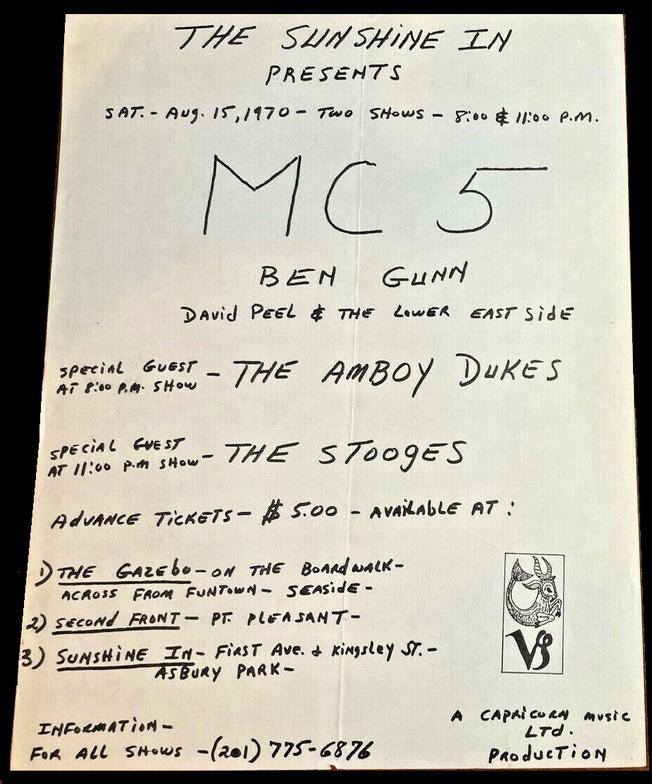 THE SUNSHINE IN
PRESENTS
SAT. - Aug. 15, 1970 - TWO SHOWS - 8:00 & 11:00 P.M.
MC 5
BEN GUNN
DAVID PEEL & THE LOWER EAST SIDE
SPECIAL GUEST
AT 8:00 P.M. SHOW - THE AMBOY DUKES
SPECIAL GUEST
AT 11:00 P.M SHOW - THE STOOGES
ADVANCE TICKETS - $ 5.00 - AVAILABLE AT :
1) THE GAZEBO - ON THE BOARDWALK -
ACROSS FROM FUNTOWN - SEASIDE -
2) SECOND FRONT - PT. PLEASANT -
3) SUNSHINE IN - FIRST AVE. & KINGSLEY ST. -
ASBURY PARK -
INFORMATION -
FOR ALL SHOWS - (201) 775-6876
A CAPRICORN MUSIC
LTD.
PRODUCTION